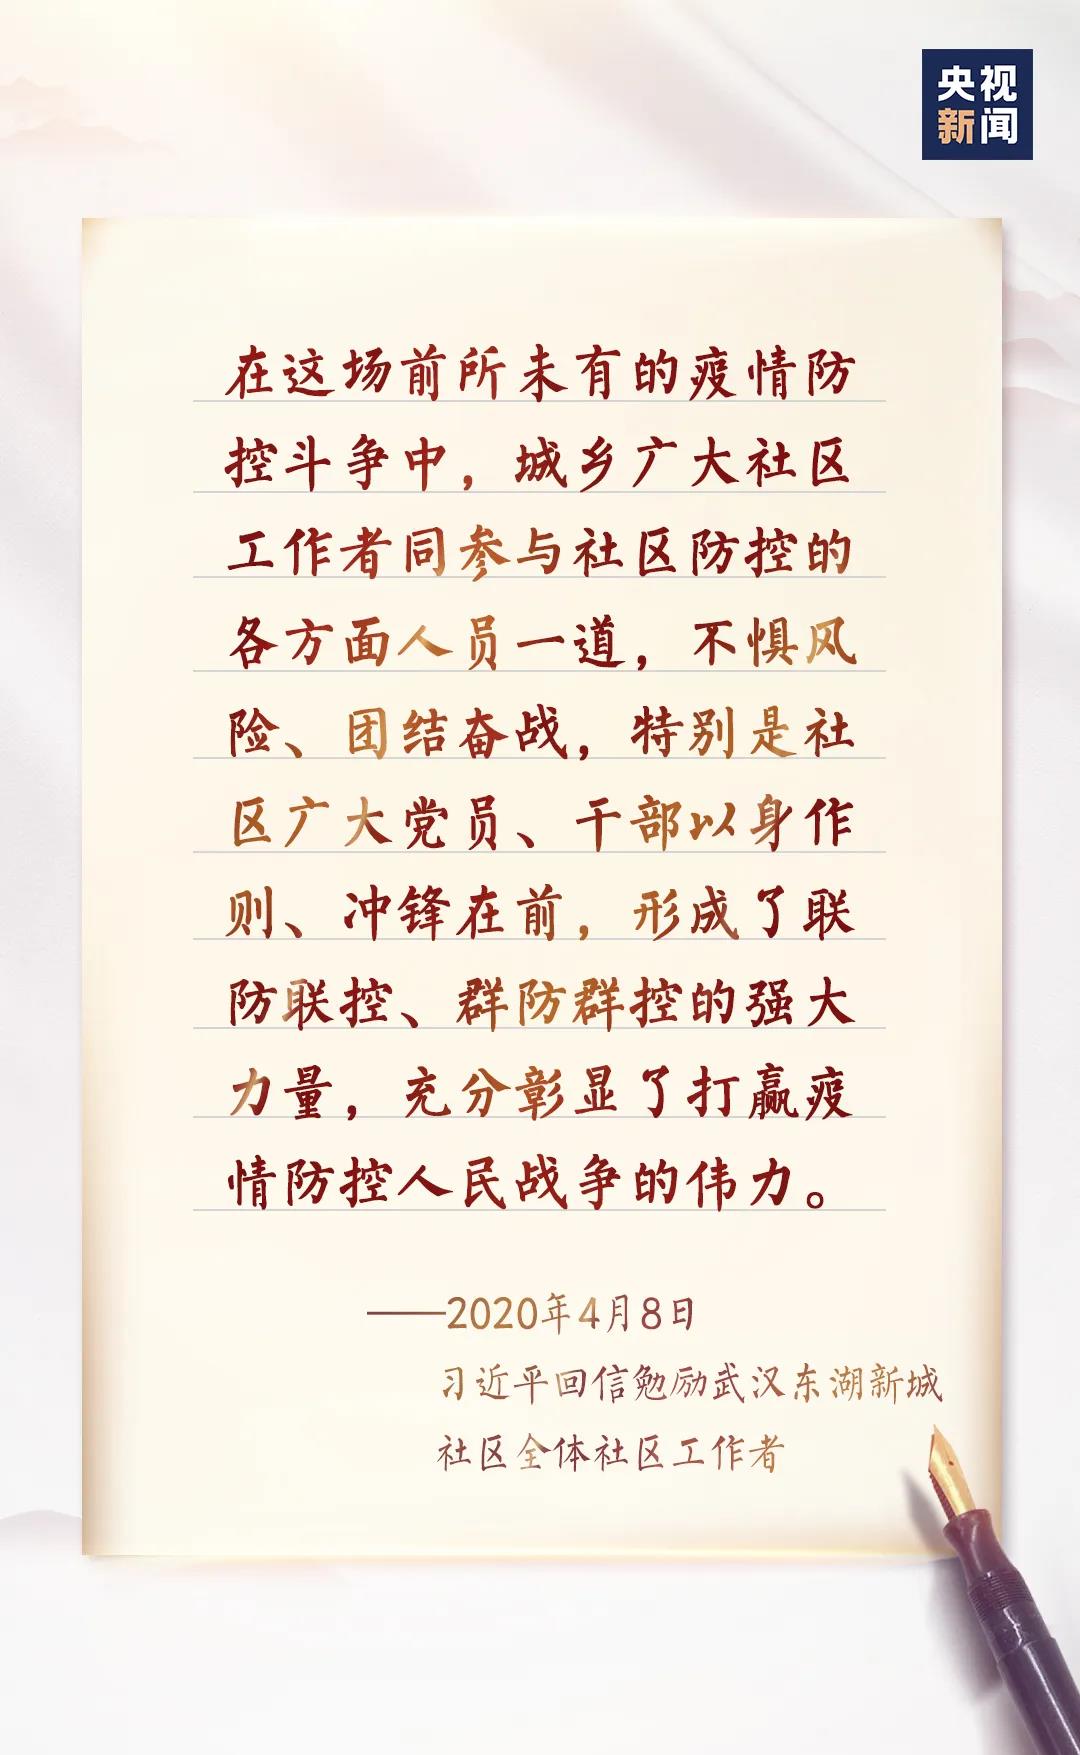 央视
新闻
在这场前所未有的疫情防
控斗争中，城乡广大社区
工作者同参与社区防控的
各方面人员一道，不惧风
险、团结奋战，特别是社
区广大党员、干部以身作
则、冲锋在前，形成了联
防联控、群防群控的强大
力量，充分彰显了打赢疫
情防控人民战争的伟力。
——2020年4月8日
习近平回信勉励武汉东湖新城
社区全体社区工作者